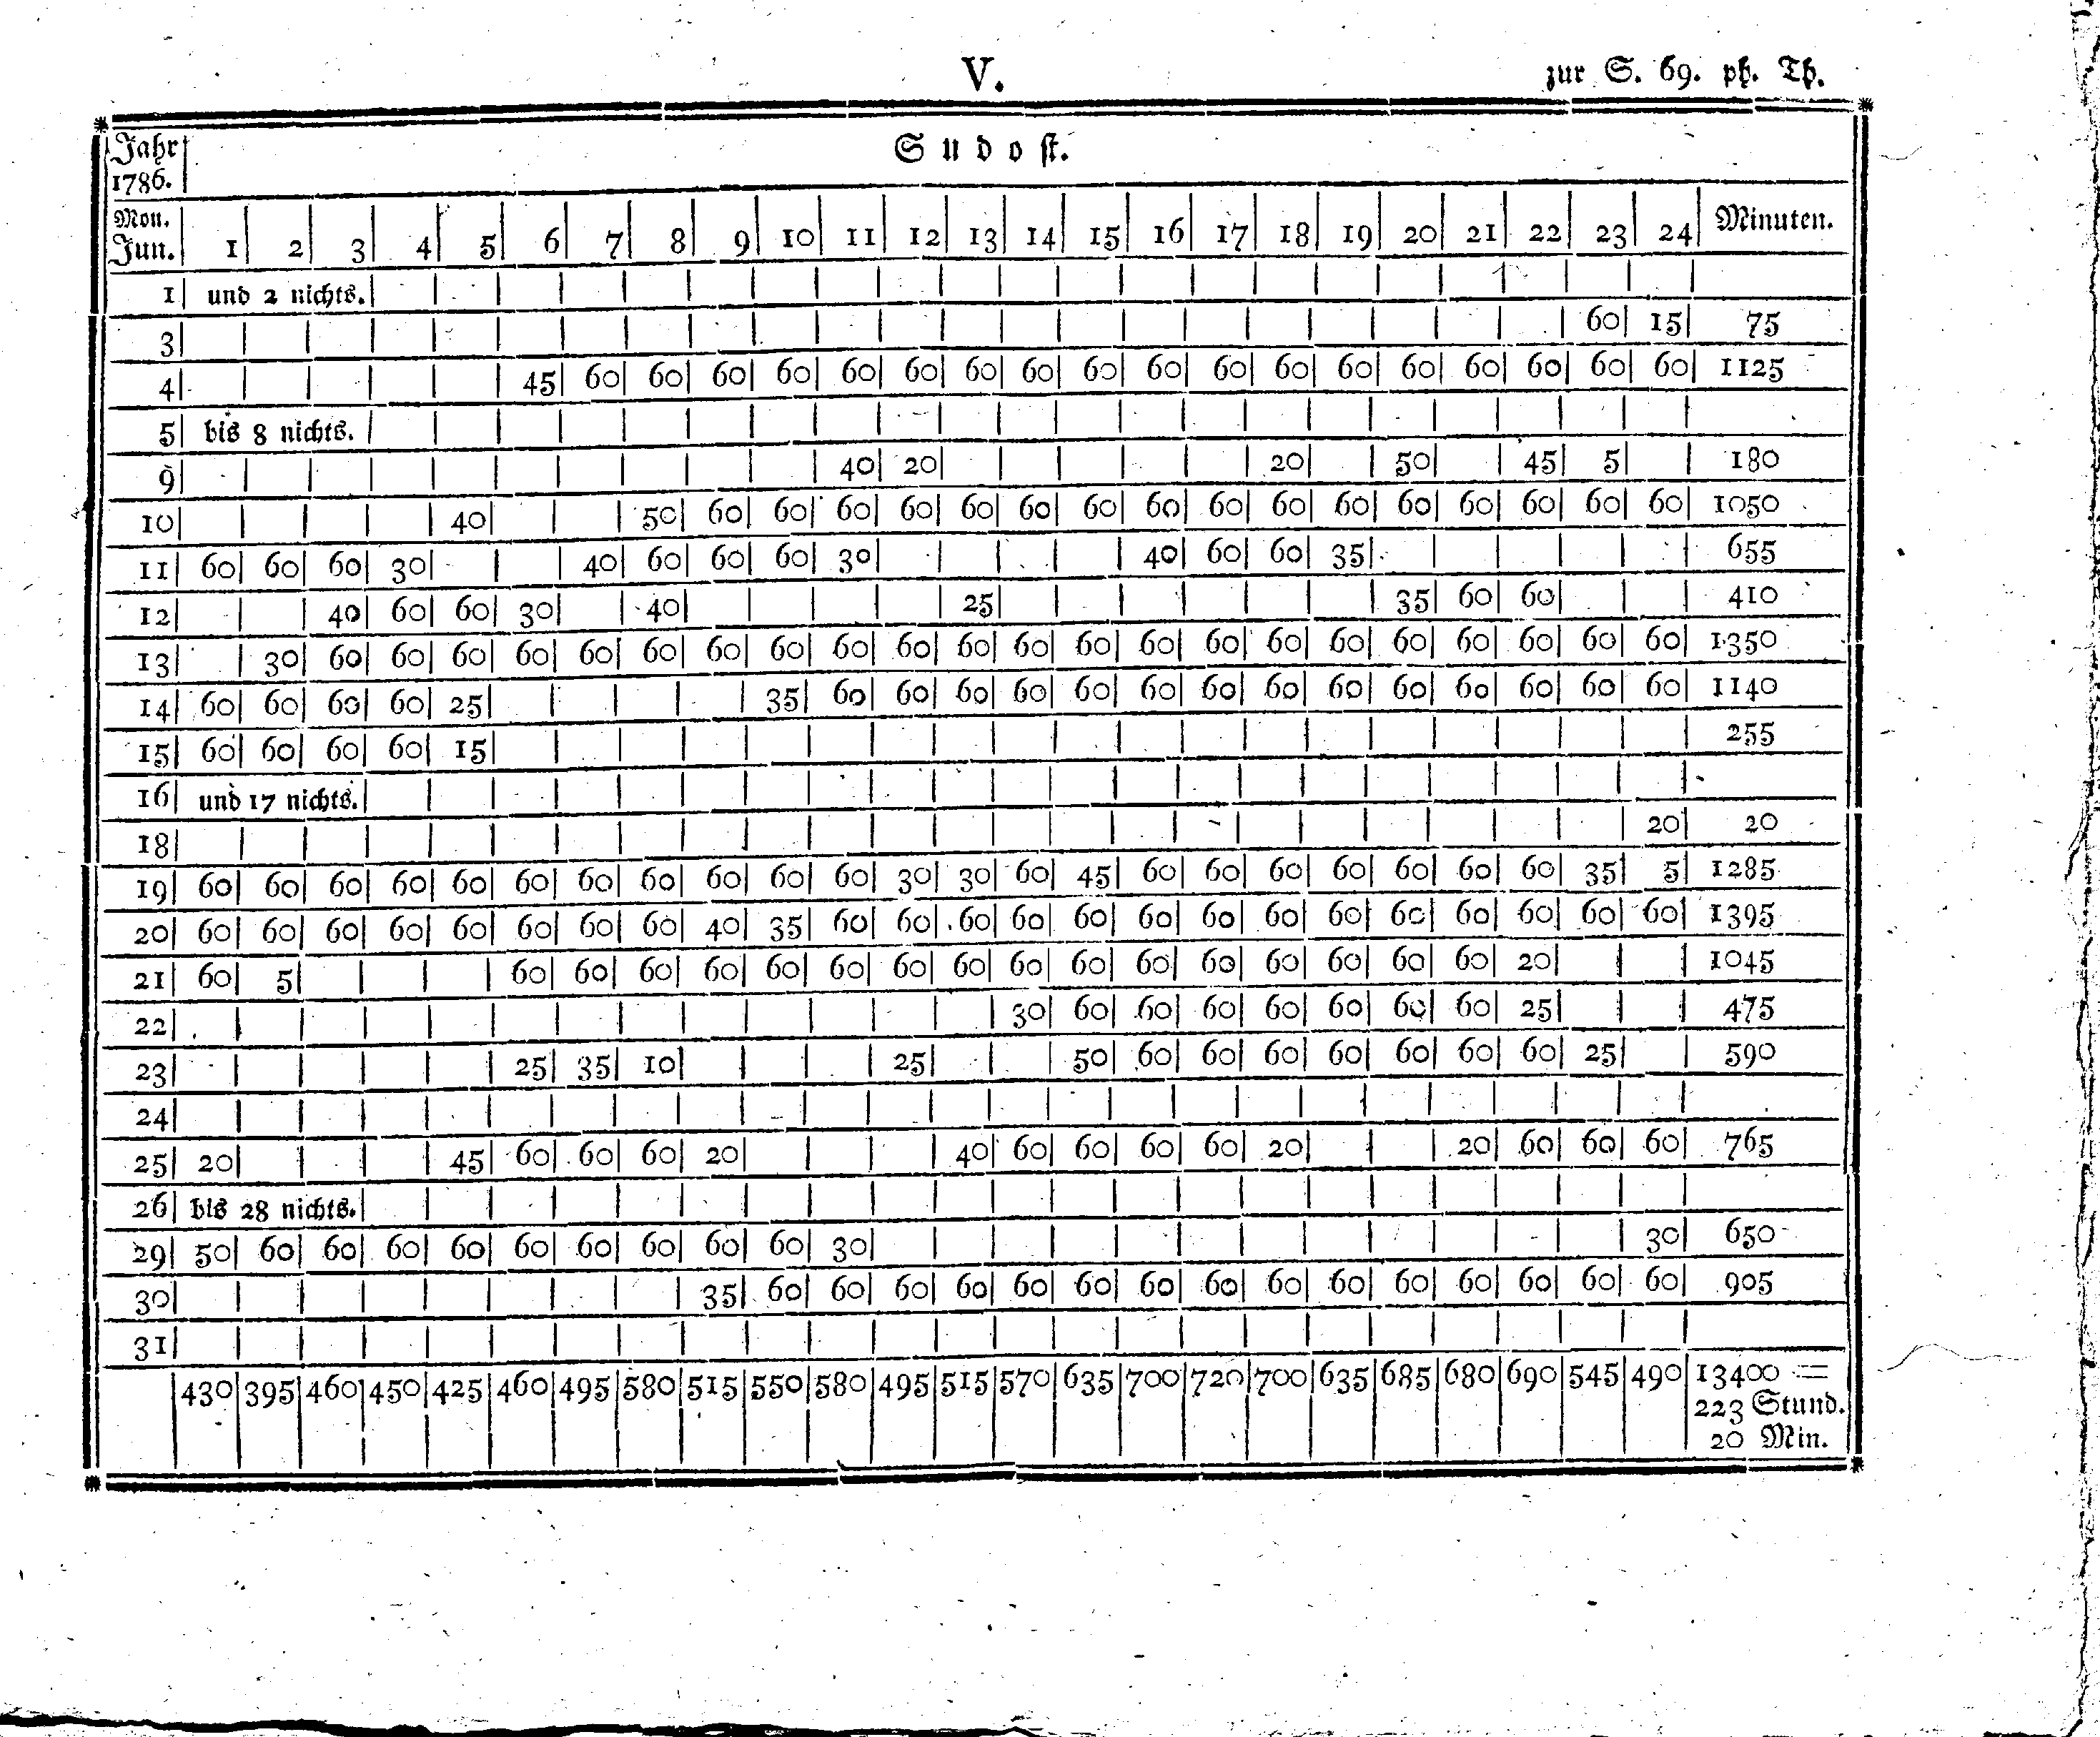 V.
zur S. 69. ph. Th.
Jahr
1786.
Sudost.
Mon.
Jun. 1 2 3 4 5 6 7 8 9 10 11 12 13 14 15 16 17 18 19 20 21 22 23 24 Minuten.
1 und 2 nichts.
3 60 15 75
4 45 60 60 60 60 60 60 60 60 60 60 60 60 60 60 60 60 60 60 1125
5 bis 8 nichts.
9 40 20 20 50 45 5 180
10 40 50 60 60 60 60 60 60 60 60 60 60 60 60 60 60 60 60 1050
11 60 60 60 30 40 60 60 60 30 40 60 60 35 655
12 40 60 60 30 40 25 35 60 60 410
13 30 60 60 60 60 60 60 60 60 60 60 60 60 60 60 60 60 60 60 60 60 60 60 1350
14 60 60 60 60 25 35 60 60 60 60 60 60 60 60 60 60 60 60 60 60 1140
15 60 60 60 60 15 255
16 und 17 nichts.
18 20 20
19 60 60 60 60 60 60 60 60 60 60 60 30 30 60 45 60 60 60 60 60 60 60 35 5 1285
20 60 60 60 60 60 60 60 60 40 35 60 60 60 60 60 60 60 60 60 60 60 60 60 60 1395
21 60 5 60 60 60 60 60 60 60 60 60 60 60 60 60 60 60 60 20 1045
22 30 60 60 60 60 60 60 60 25 475
23 25 35 10 25 50 60 60 60 60 60 60 60 25 590
24
25 20 45 60 60 60 20 40 60 60 60 60 20 20 60 60 60 765
26 bis 28 nichts.
29 50 60 60 60 60 60 60 60 60 60 30 30 650
30 35 60 60 60 60 60 60 60 60 60 60 60 60 60 60 60 905
31
430 395 460 450 425 460 495 580 515 550 580 495 515 570 635 700 720 700 635 685 680 690 545 490 13400 =
223 Stund.
20 Min.